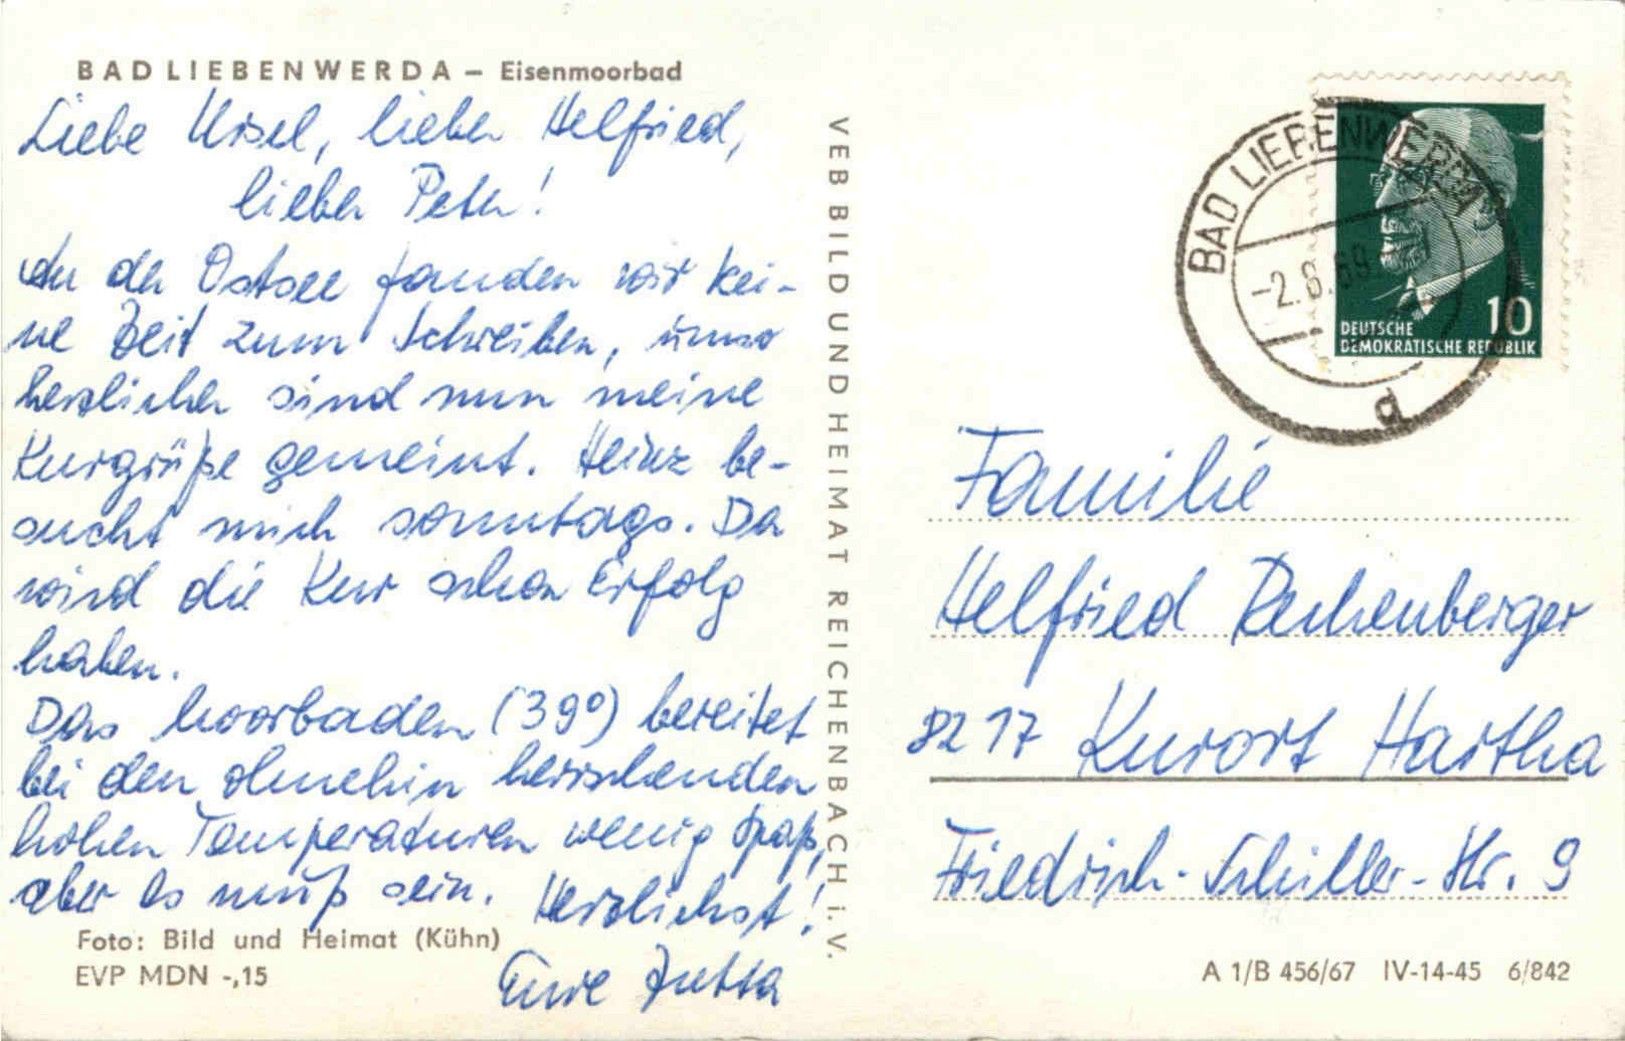 BAD LIEBENWERDA – Eisenmoorbad
Liebe Ursel, lieber Helfried,
lieber Peter!
An der Ostsee fanden wir kei-
ne Zeit zum Schreiben, umso
herzlicher sind nun meine
Kurgrüße gemeint. Heinz be-
sucht mich sonntags. Da
wird die Kur schon Erfolg
haben.
Das Moorbaden (39°) bereitet
bei den ohnehin herrschenden
hohen Temperaturen wenig Spaß,
aber es muß sein. Herzlichst!
Eure Jutta
Foto: Bild und Heimat (Kühn)
EVP MDN -,15
VEB BILD UND HEIMAT REICHENBACH i. V.
BAD LIEBENWERDA
-2.8.69
d
10
DEUTSCHE
DEMOKRATISCHE REPUBLIK
Familie
Helfried Rechenberger
8217 Kurort Hartha
Friedrich-Schiller-Str. 9
A 1/B 456/67 IV-14-45 6/842